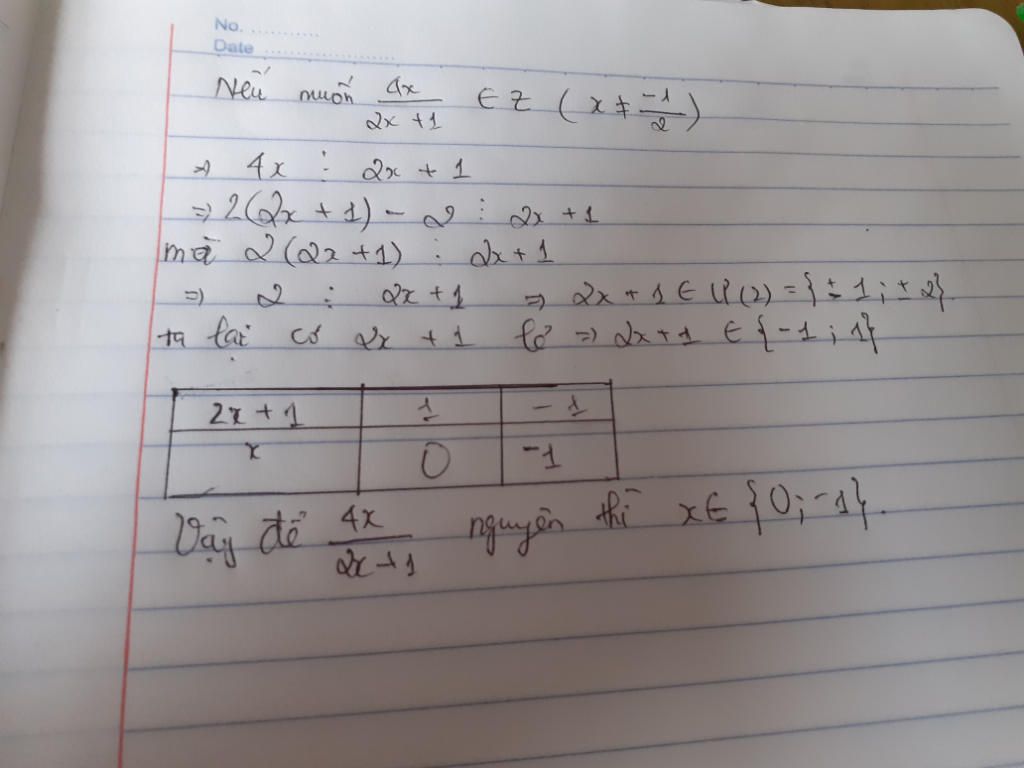 No. ............
Date .......................
Nếu muốn 4x/2x+1 ∈ Z (x ≠ -1/2)
=> 4x ⋮ 2x + 1
=> 2(2x + 1) - 2 ⋮ 2x + 1
mà 2(2x + 1) ⋮ 2x + 1
=> 2 ⋮ 2x + 1 => 2x + 1 ∈ Ư(2) = {± 1; ± 2}.
ta lại có 2x + 1 lẻ => 2x + 1 ∈ {-1; 1}
2x + 1 1 -1
x 0 -1
Vậy để 4x/2x+1 nguyên thì x ∈ {0; -1}.